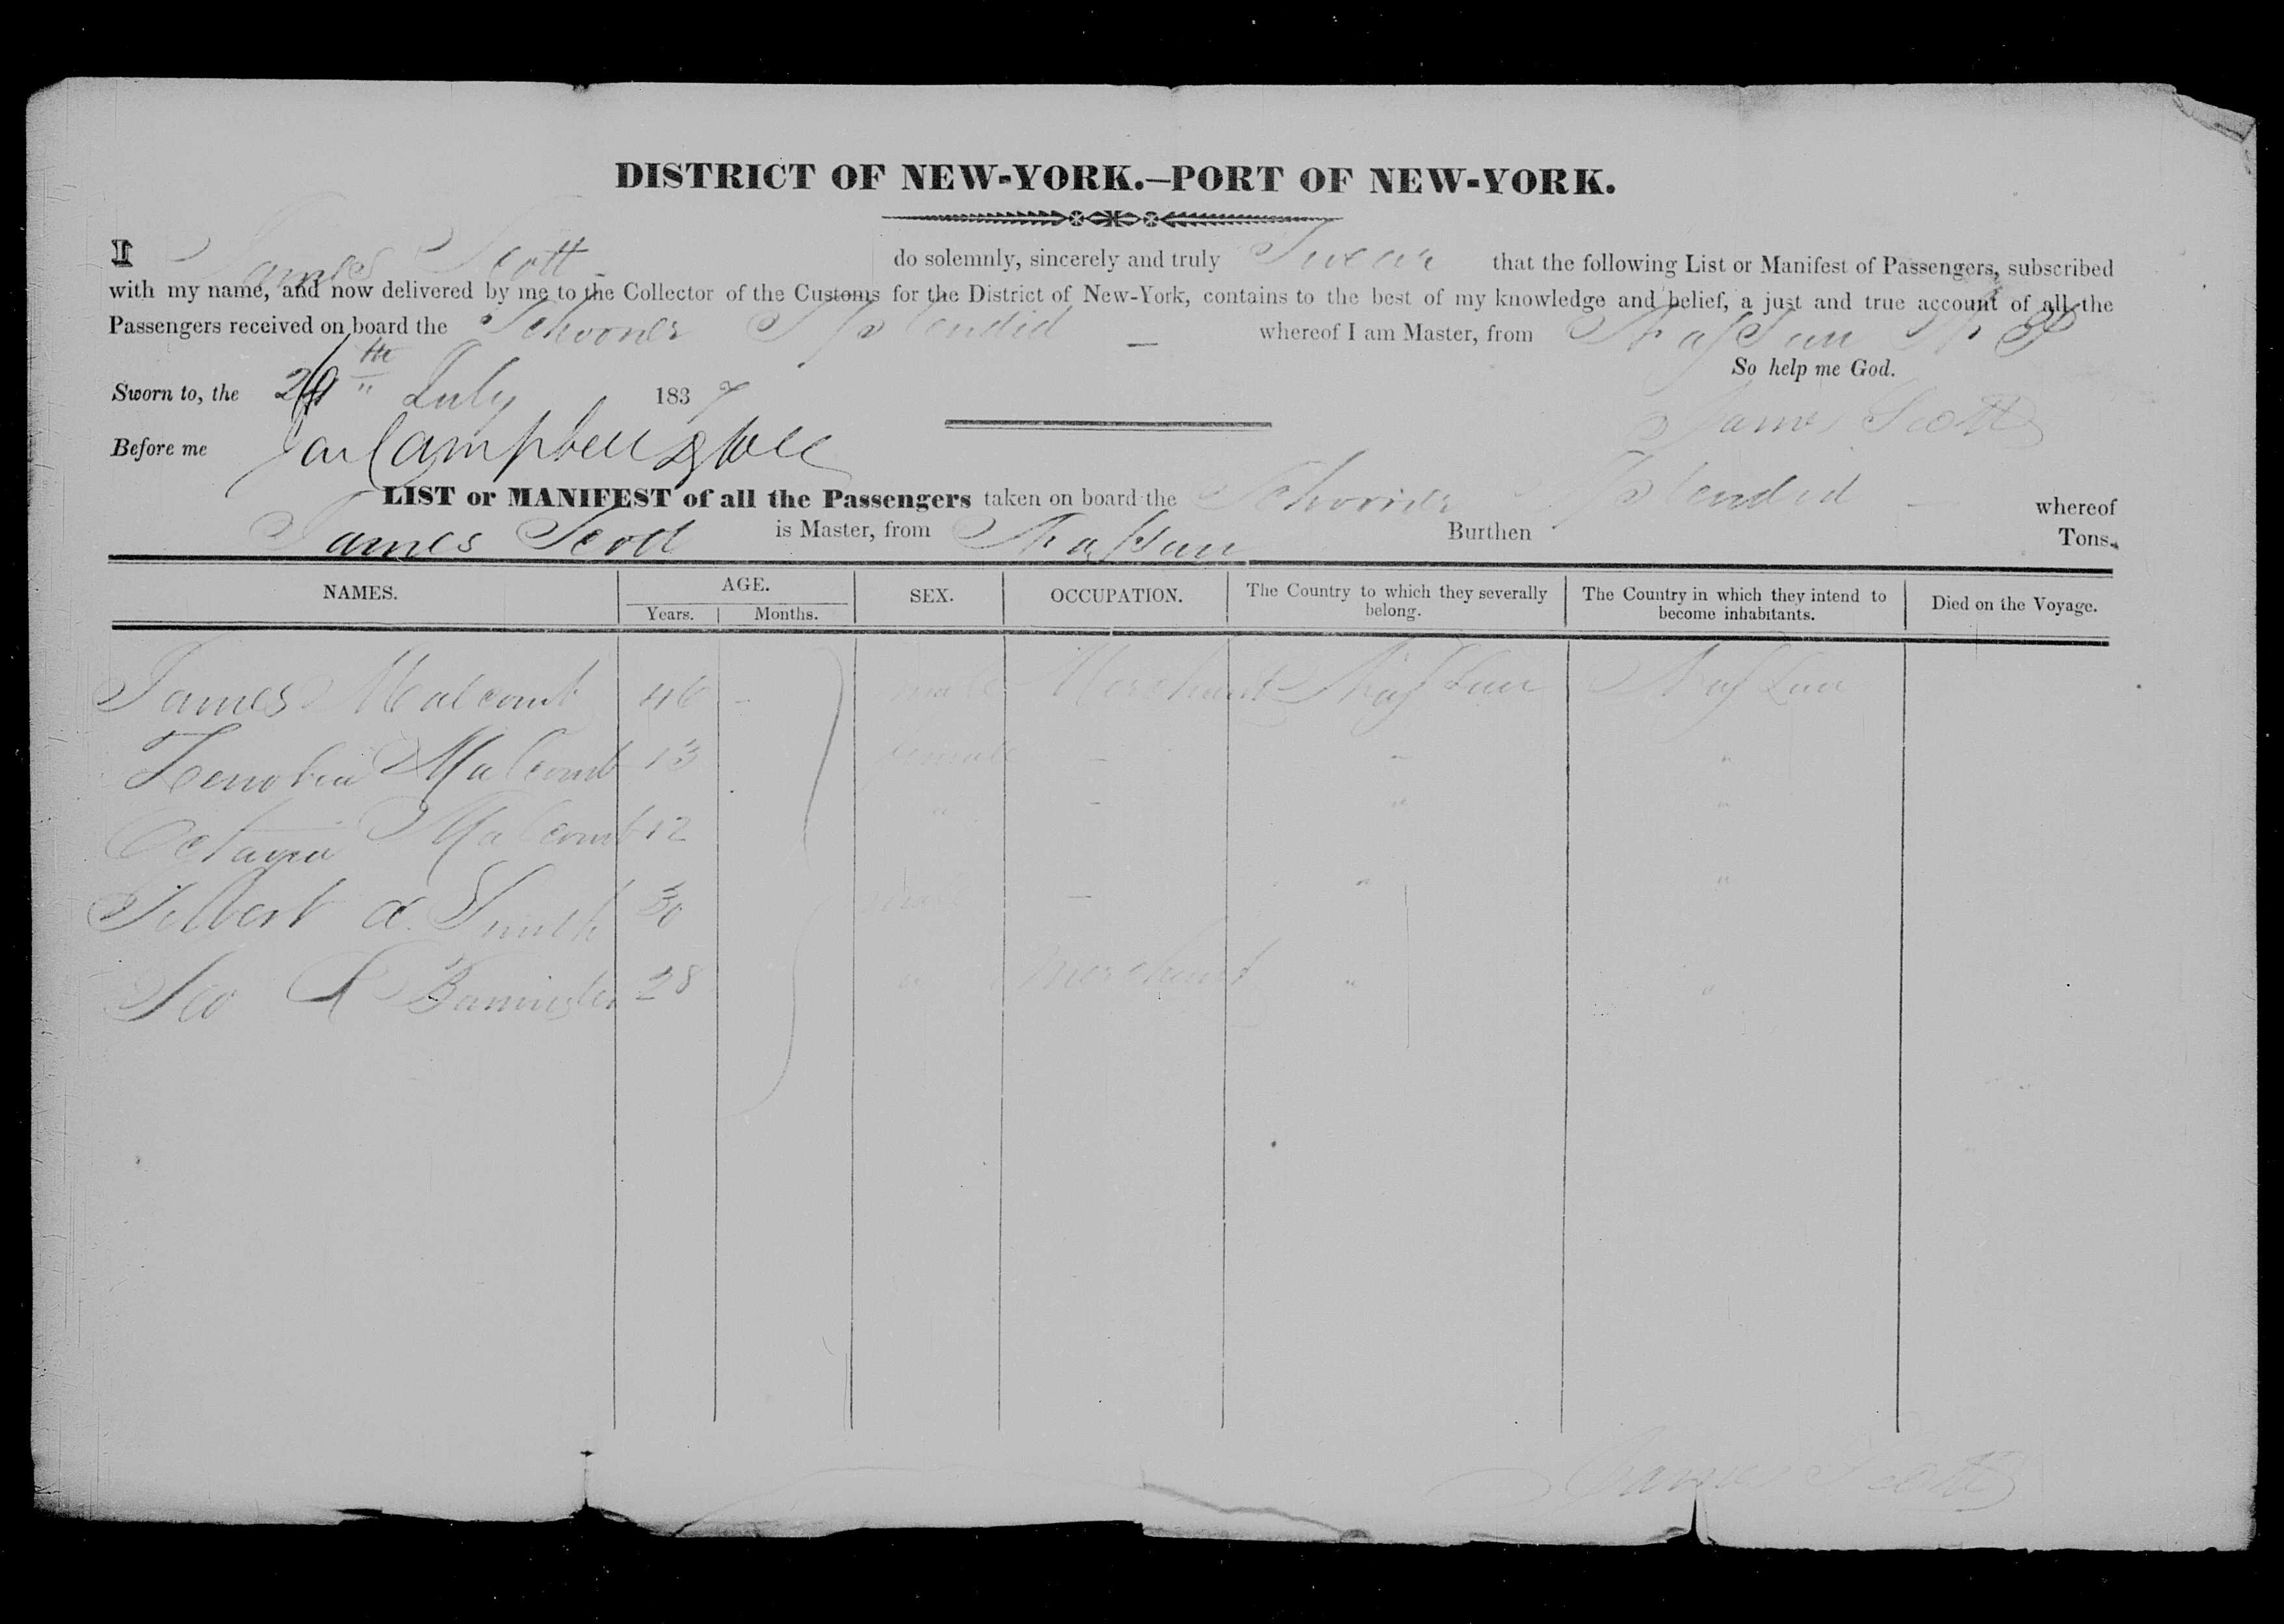 DISTRICT OF NEW-YORK.—PORT OF NEW-YORK.
I James Scott do solemnly, sincerely and truly Swear that the following List or Manifest of Passengers, subscribed
with my name, and now delivered by me to the Collector of the Customs for the District of New-York, contains to the best of my knowledge and belief, a just and true account of all the
Passengers received on board the Schooner Splendid — whereof I am Master, from Nassau N P
So help me God.
Sworn to, the 29th July 1837
James Scott
Before me Campbell
LIST or MANIFEST of all the Passengers taken on board the Schooner Splendid whereof
James Scott is Master, from Nassau Burthen Tons.
NAMES. AGE. SEX. OCCUPATION. The Country to which they severally belong. The Country in which they intend to become inhabitants. Died on the Voyage.
Years. Months.
James Malcomb 46 - male Merchant Nassau Nassau
Zenobia Malcomb 13 female - " "
Octavia Malcomb 12 " - " "
Gilbert A. Smith 30 male - " "
Geo Bannister 28 " Merchant " "
James Scott